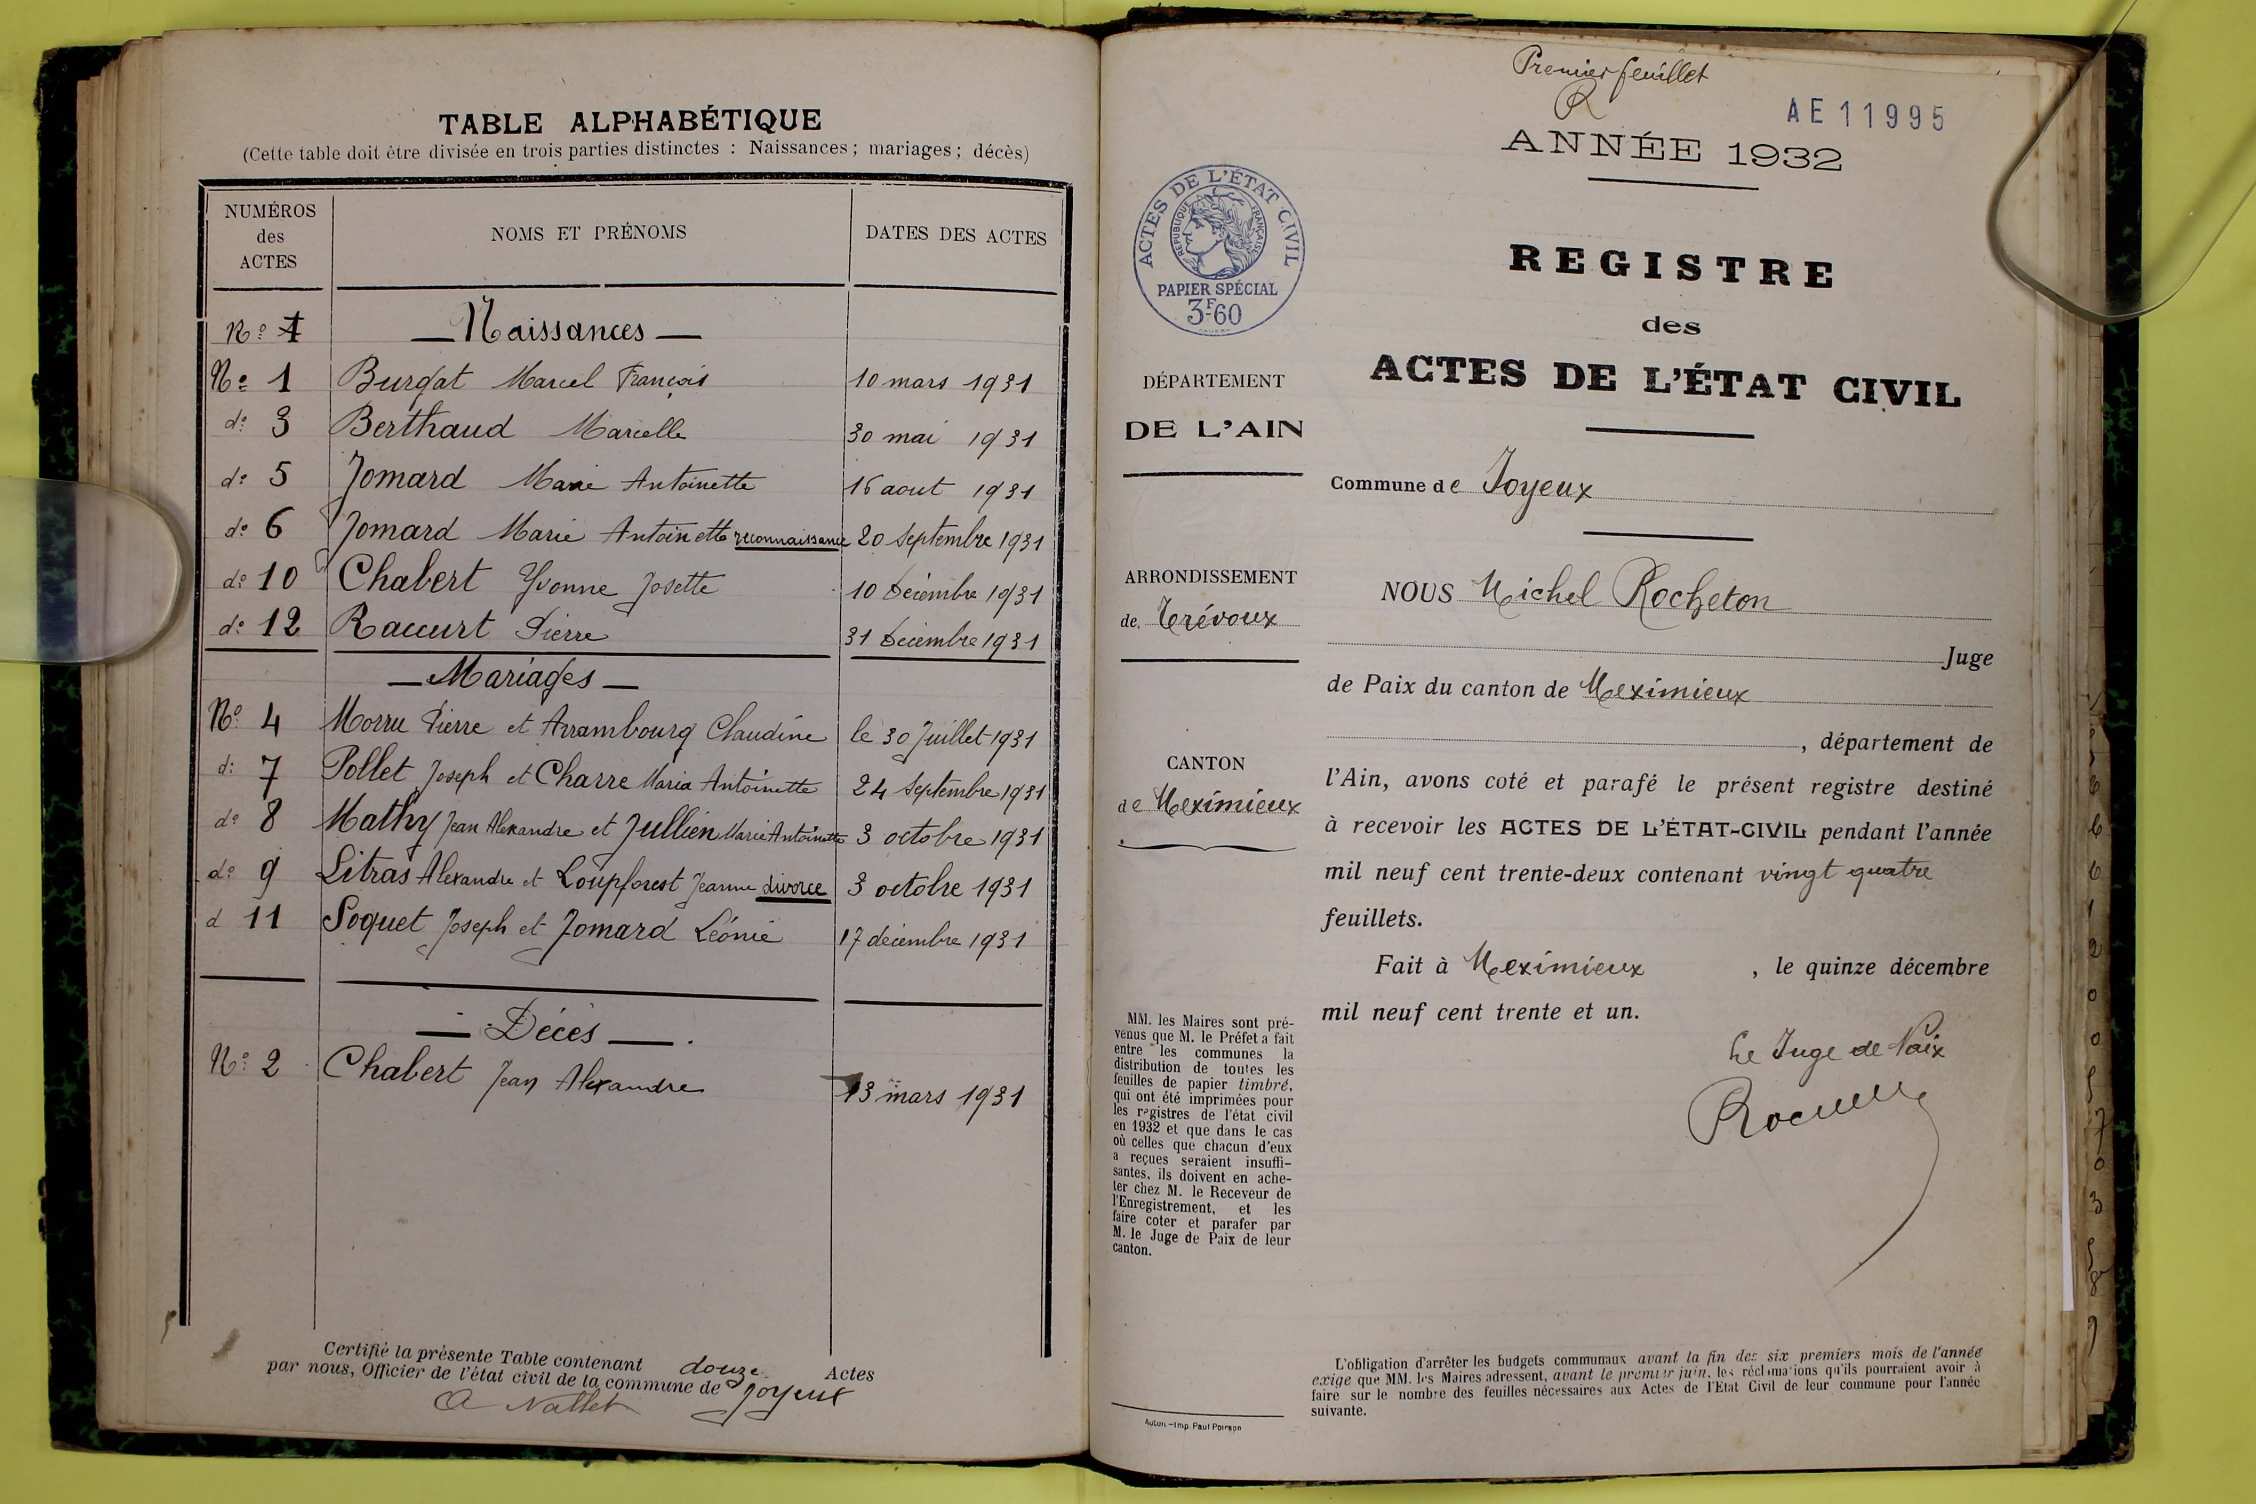 TABLE ALPHABÉTIQUE
(Cette table doit être divisée en trois parties distinctes : Naissances ; mariages ; décès)
NUMÉROS des ACTES NOMS ET PRÉNOMS DATES DES ACTES
No 1 — Naissances —
No 1 Burgat Marcel François 10 mars 1931
do 3 Berthaud Marcelle 30 mai 1931
do 5 Jomard Marie Antoinette 16 aout 1931
do 6 Jomard Marie Antoinette reconnaissance 20 septembre 1931
do 10 Chabert Yvonne Josette 10 Décembre 1931
do 12 Raccurt Pierre 31 Décembre 1931
— Mariages —
No 4 Morru Pierre et Arrambourg Claudine le 30 juillet 1931
do 7 Pollet Joseph et Charre Maria Antoinette 24 septembre 1931
do 8 Mathy Jean Alexandre et Jullien Marie Antoinette 3 octobre 1931
do 9 Litras Alexandre et Loupforest Jeanne divorce 3 octobre 1931
d 11 Soquet Joseph et Jomard Léonie 17 décembre 1931
— Décès —
No 2 Chabert Jean Alexandre 13 mars 1931
Certifié la présente Table contenant douze Actes
par nous, Officier de l'état civil de la commune de Joyeux
Premier feuillet
R
AE 11995
ANNÉE 1932
ACTES DE L'ÉTAT CIVIL
RÉPUBLIQUE FRANÇAISE
PAPIER SPÉCIAL
3F60
REGISTRE
des
ACTES DE L'ÉTAT CIVIL
DÉPARTEMENT
DE L'AIN
Commune de Joyeux
ARRONDISSEMENT
de Trévoux
CANTON
de Meximieux
NOUS Michel Rocheton
Juge
de Paix du canton de Meximieux
, département de
l'Ain, avons coté et parafé le présent registre destiné
à recevoir les ACTES DE L'ÉTAT-CIVIL pendant l'année
mil neuf cent trente-deux contenant vingt quatre
feuillets.
Fait à Meximieux , le quinze décembre
mil neuf cent trente et un.
Le Juge de Paix
MM. les Maires sont pré-
venus que M. le Préfet a fait
entre les communes la
distribution de toutes les
feuilles de papier timbré,
qui ont été imprimées pour
les registres de l'état civil
en 1932 et que dans le cas
où celles que chacun d'eux
a reçues seraient insuffi-
santes, ils doivent en ache-
ter chez M. le Receveur de
l'Enregistrement, et les
faire coter et parafer par
M. le Juge de Paix de leur
canton.
L'obligation d'arrêter les budgets communaux avant la fin des six premiers mois de l'année
exige que MM. les Maires adressent, avant le premier juin, les réclamations qu'ils pourraient avoir à
faire sur le nombre des feuilles nécessaires aux Actes de l'Etat Civil de leur commune pour l'année
suivante.
Autun.—Imp. Paul Poirson